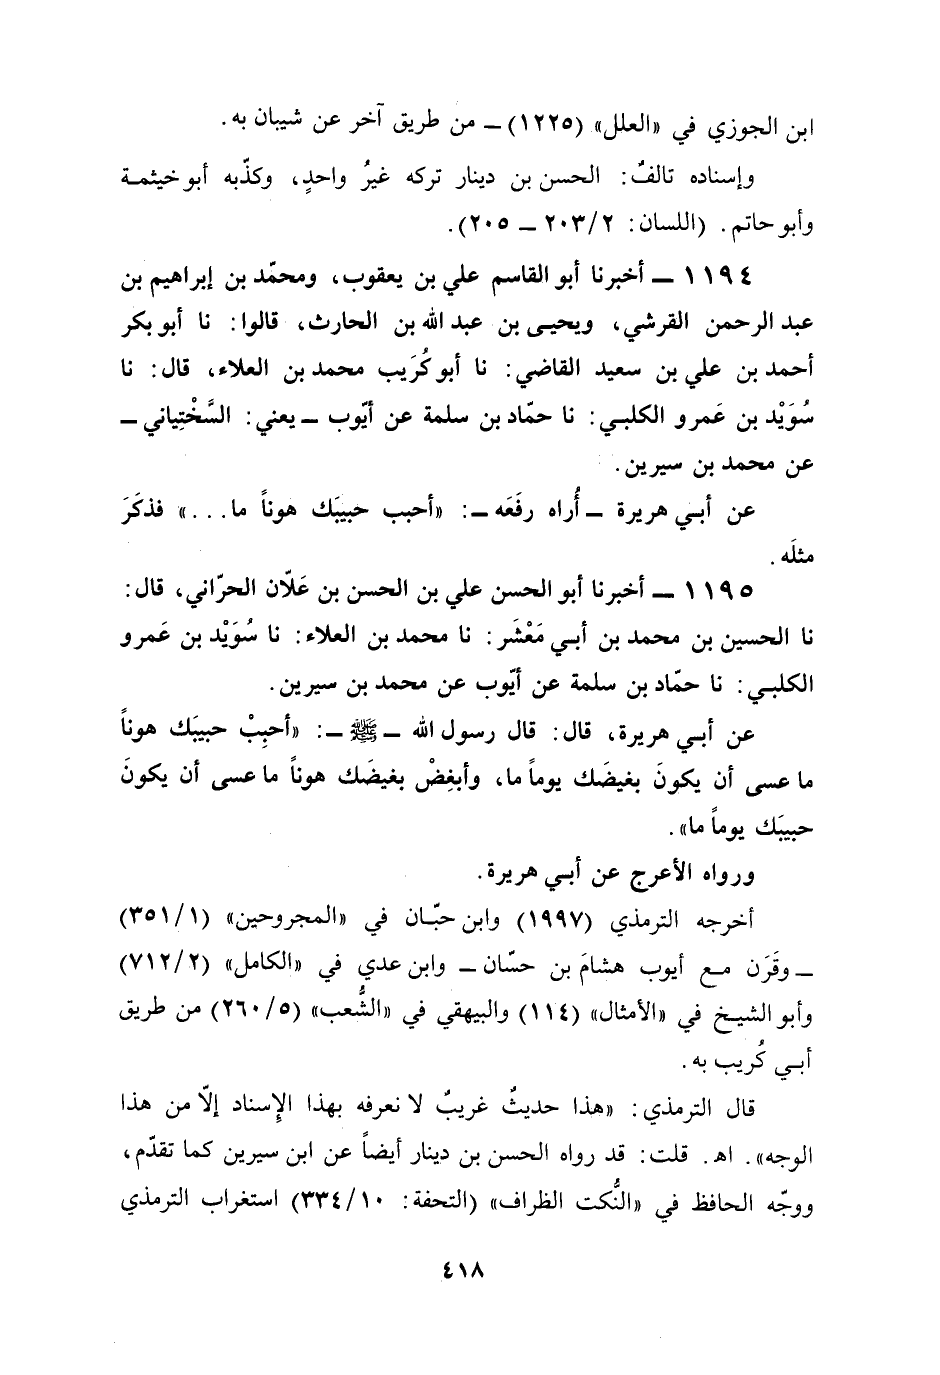 ابن الجوزي في «العلل» (١٢٢٥) ــ من طريق آخر عن شيبان به.
وإسناده تالفٌ: الحسن بن دينار تركه غيرُ واحدٍ، وكذّبه أبو خيثمة
وأبو حاتم. (اللسان: ٢٠٣/٢ ــ ٢٠٥).
١١٩٤ ــ أخبرنا أبو القاسم علي بن يعقوب، ومحمّد بن إبراهيم بن
عبد الرحمن القرشي، ويحيى بن عبد الله بن الحارث، قالوا: نا أبو بكر
أحمد بن علي بن سعيد القاضي: نا أبو كُرَيب محمد بن العلاء، قال: نا
سُوَيْد بن عَمرو الكلبي: نا حمّاد بن سلمة عن أيّوب ــ يعني: السَّخْتِياني ــ
عن محمد بن سيرين.
عن أبي هريرة ــ أُراه رفَعَه ــ: «أحبب حبيبَك هوناً ما...» فذكَرَ
مثلَه.
١١٩٥ ــ أخبرنا أبو الحسن علي بن الحسن بن عَلّان الحرّاني، قال:
نا الحسين بن محمد بن أبي مَعْشَر: نا محمد بن العلاء: نا سُوَيْد بن عَمرو
الكلبي: نا حمّاد بن سلمة عن أيّوب عن محمد بن سيرين.
عن أبي هريرة، قال: قال رسول الله ــ ﷺ ــ: «أحبِبْ حبيبَك هوناً
ما عسى أن يكونَ بغيضَك يوماً ما، وأبغِضْ بغيضَك هوناً ما عسى أن يكونَ
حبيبَك يوماً ما».
ورواه الأعرج عن أبي هريرة.
أخرجه الترمذي (١٩٩٧) وابن حبّان في «المجروحين» (٣٥١/١)
ــ وقَرَن مع أيوب هشامَ بن حسّان ــ وابن عدي في «الكامل» (٧١٢/٢)
وأبو الشيخ في «الأمثال» (١١٤) والبيهقي في «الشُّعب» (٢٦٠/٥) من طريق
أبي كُريب به.
قال الترمذي: «هذا حديثٌ غريبٌ لا نعرفه بهذا الإِسناد إلّا من هذا
الوجه». اهـ. قلت: قد رواه الحسن بن دينار أيضاً عن ابن سيرين كما تقدّم،
ووجّه الحافظ في «النُّكت الظراف» (التحفة: ٣٣٤/١٠) استغراب الترمذي
٤١٨